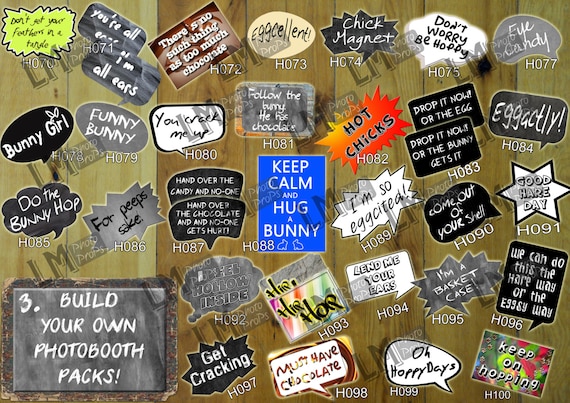 Don't get your
feathers in a
twist
H070
you're all
ears
I'm
all ears
H071
There's no
such thing
as too much
chocolate
H072
Eggcellent!
H073
Chick
Magnet
H074
Don't
Worry
Be Hoppy
H075
Eye
Candy
H077
Bunny Girl
H078
Funny
Bunny
H079
You crack
me up!
H080
Follow the
bunny.
He has
chocolate.
H081
HOT
CHICKS
H082
DROP IT NOW!!
OR THE EGG
DROP IT NOW!!
OR THE BUNNY
GETS IT
H083
Eggactly!
H084
Do the
Bunny Hop
H085
For peeps
sake.
H086
HAND OVER THE
CANDY AND NO-ONE
HAND OVER
THE CHOCOLATE
AND AND NO-ONE
GETS HURT!
H087
KEEP
CALM
AND
HUG
A
BUNNY
H088
I'm so
eggcited!
H089
come out
of
your shell
H090
GOOD
HARE
DAY
H091
I FEEL
HOLLOW
INSIDE
H092
Hip
Hip
Hop
H093
LEND ME
YOUR
EARS
H094
I'm A
BASKET
CASE
H095
we can do
this the
hard way
or the
Eggsy way
H096
3. BUILD
YOUR OWN
PHOTOBOOTH
PACKS!
Get
Cracking
H097
MUST HAVE
CHOCOLATE
H098
Oh
HoppyDays
H099
keep
on
hopping
H100
LM Photo Props